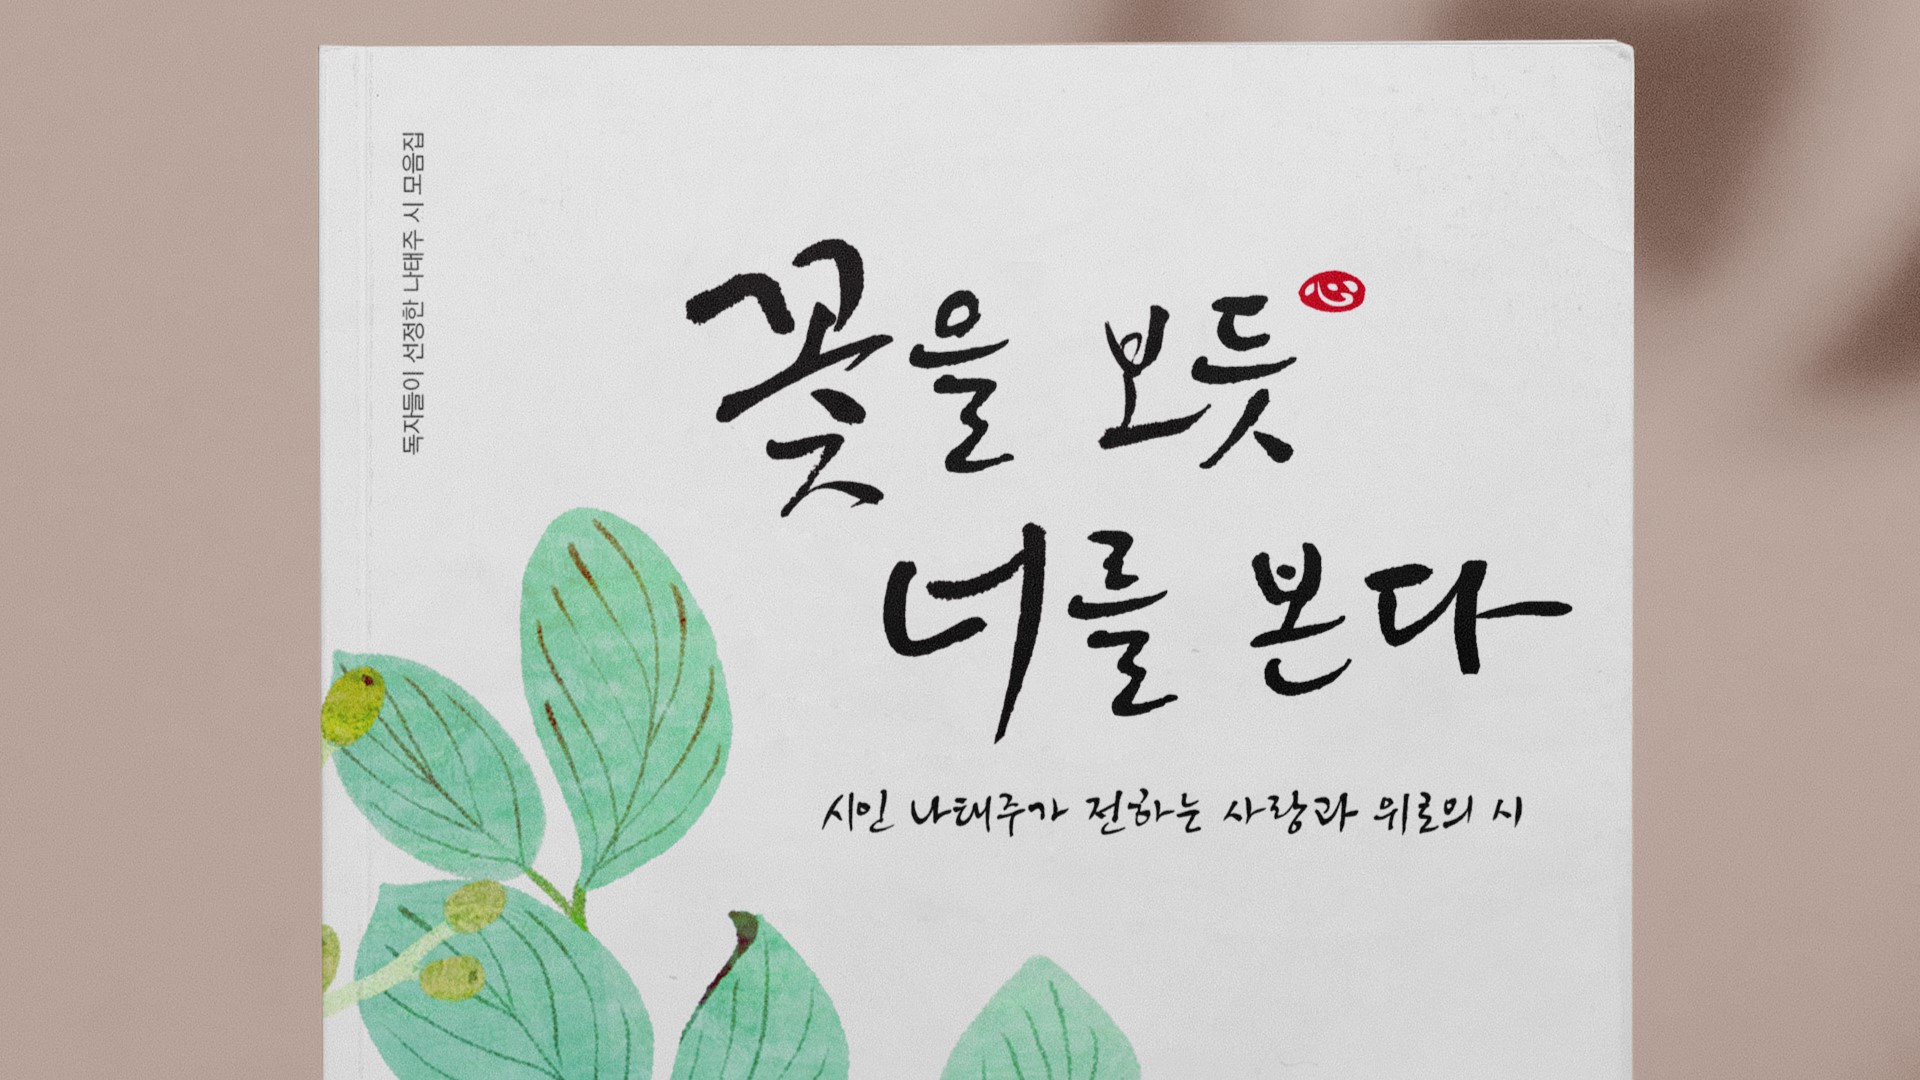 독자들이 선정한 나태주 시 모음집
꽃을 보듯
너를 본다
시인 나태주가 전하는 사랑과 위로의 시